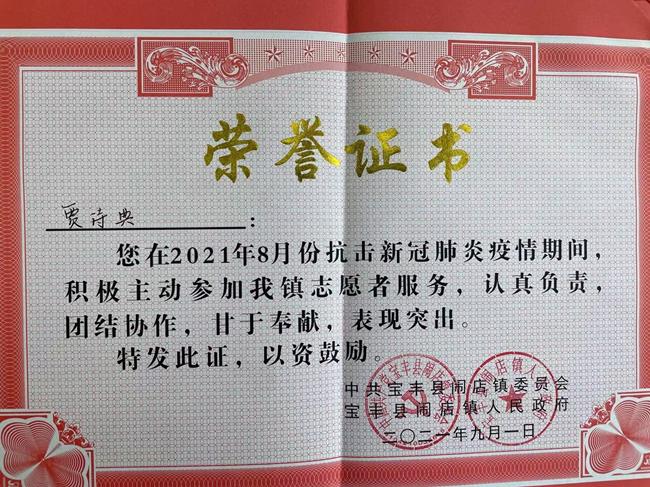 荣誉证书
贾诗典：
您在2021年8月份抗击新冠肺炎疫情期间，
积极主动参加我镇志愿者服务，认真负责，
团结协作，甘于奉献，表现突出。
特发此证，以资鼓励。
中共宝丰县闹店镇委员会
宝丰县闹店镇人民政府
二〇二一年九月一日